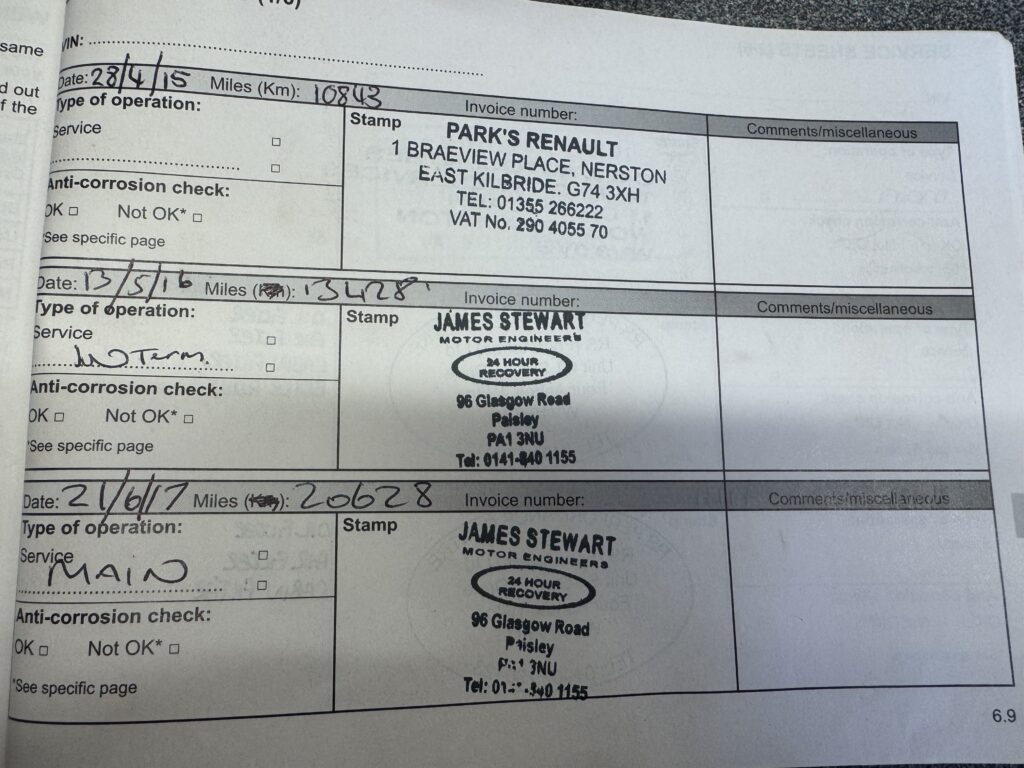 same
d out
f the
VIN:
Date: 28/4/15 Miles (Km): 10843 Invoice number:
Comments/miscellaneous
Type of operation:
Service
Stamp
PARK'S RENAULT
1 BRAEVIEW PLACE, NERSTON
EAST KILBRIDE. G74 3XH
TEL: 01355 266222
VAT No. 290 4055 70
Anti-corrosion check:
OK Not OK*
*See specific page
Date: 13/5/16 Miles (Km): 13428 Invoice number:
Comments/miscellaneous
Type of operation:
Service
Stamp
JAMES STEWART
MOTOR ENGINEERS
24 HOUR
RECOVERY
96 Glasgow Road
Paisley
PA1 3NU
Tel: 0141-840 1155
Anti-corrosion check:
OK Not OK*
*See specific page
Date: 21/6/17 Miles (Km): 20628 Invoice number:
Comments/miscellaneous
Type of operation:
Service
MAIN
Stamp
JAMES STEWART
MOTOR ENGINEERS
24 HOUR
RECOVERY
96 Glasgow Road
Paisley
PA1 3NU
Tel: 0141-840 1155
Anti-corrosion check:
OK Not OK*
*See specific page
6.9